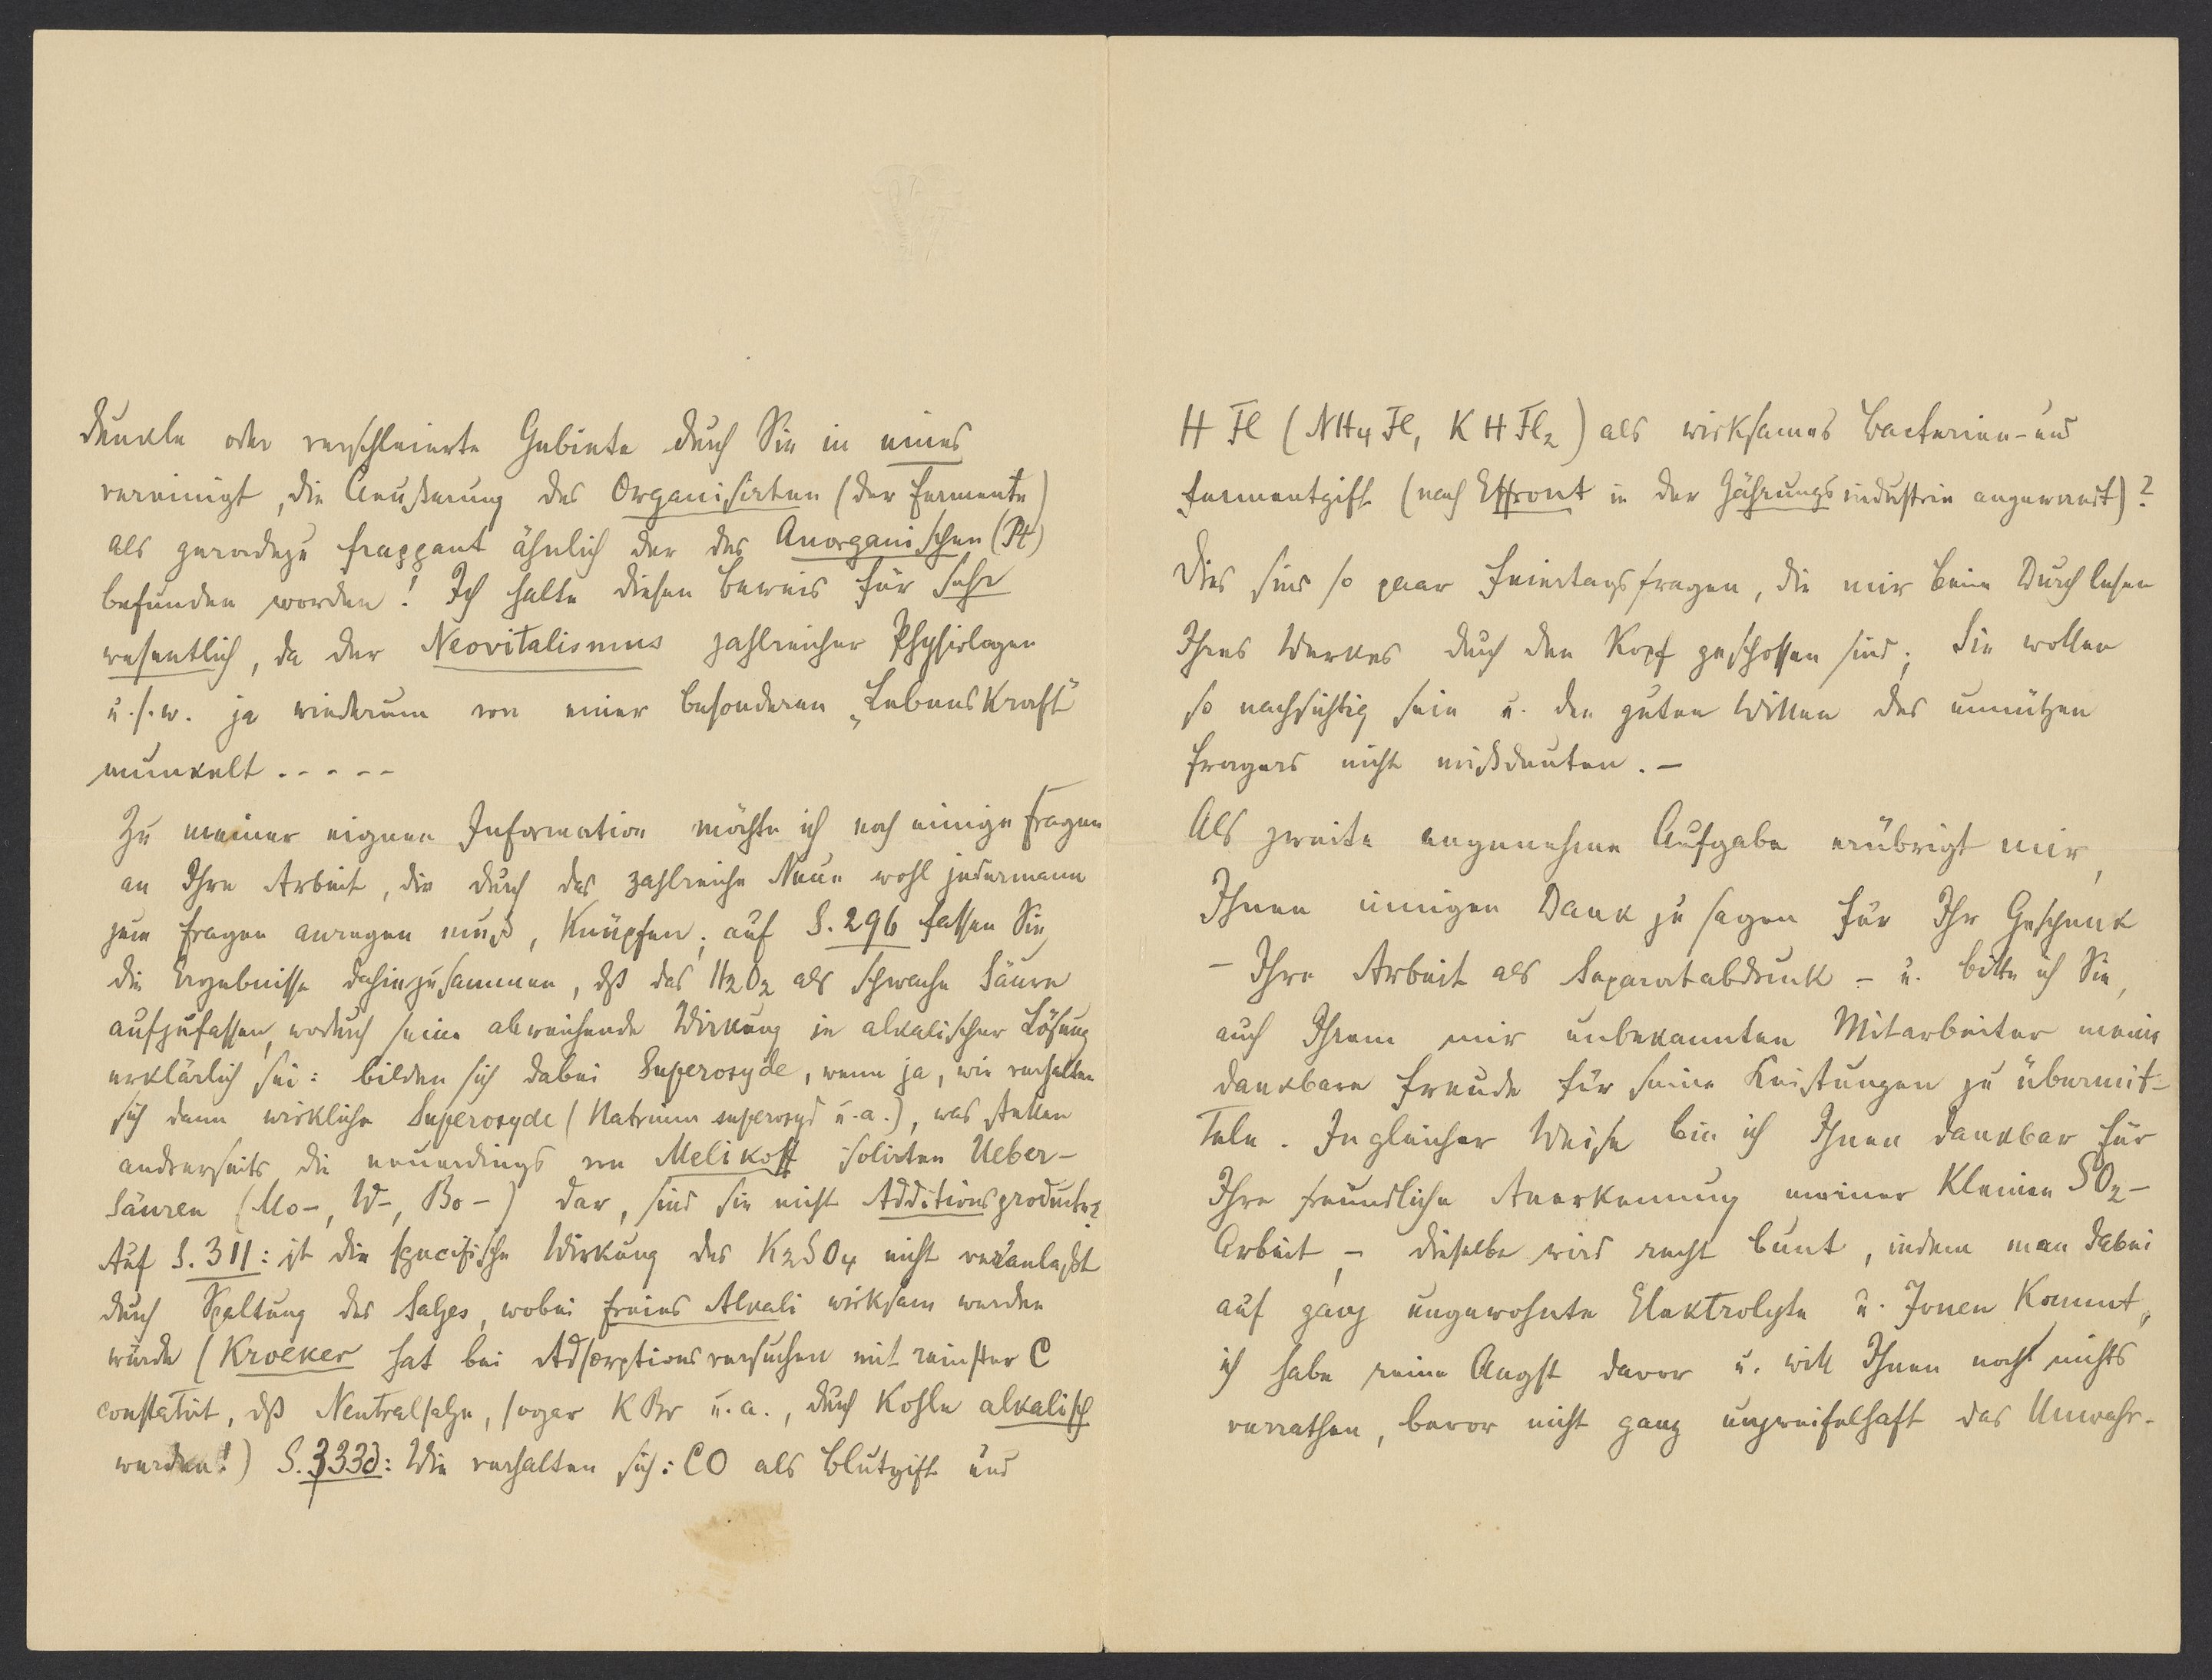 dunkle oder verschleierte Gebiete durch Sie in eines
vereinigt, die Aeußerung des Organisirten (der Fermente)
als geradezu frappant ähnlich der des Anorganischen (Pt)
befunden worden! Ich halte diesen Beweis für sehr
wesentlich, da der Neovitalismus zahlreicher Physiologen
u.s.w. ja wiederum von einer besonderen „Lebenskraft"
munkelt . - - - -
Zu meiner eignen Information möchte ich noch einige Fragen
an Ihre Arbeit, die durch das zahlreiche Neue wohl jedermann
zum Fragen anregen muß, knüpfen; auf S. 296 fassen Sie
die Ergebnisse dahin zusammen, dß das H2O2 als schwache Säure
aufzufassen, wodurch seine abweichende Wirkung in alkalischer Lösung
erklärlich sei: bilden sich dabei Superoxyde, wenn ja, wie verhalten
sich dann wirkliche Superoxyde (Natriumsuperoxyd u.a.), was stellen
andrerseits die neuerdings von Melikoff isolirten Ueber-
säuren (Mo-, W-, Bo-) dar, sind sie nicht Additionsproducte?
Auf S. 311: ist die specifische Wirkung des K2SO4 nicht veranlaßt
durch Spaltung des Salzes, wobei freies Alkali wirksam werden
würde (Kroeker hat bei Adsorptionsversuchen mit reinster C
constatirt, dß Neutralsalze, sogar KBr u.a., durch Kohle alkalisch
werden!) S. 333d: Wie verhalten sich: CO als Blutgift und
H Fl (NH4 Fl, K H Fl2) als wirksames Bacterien- und
Fermentgift (nach Effront in der Gährungsindustrie angewandt)?
Dies sind so paar Feiertagsfragen, die mir beim Durchlesen
Ihres Werkes durch den Kopf geschossen sind; Sie wollen
so nachsichtig sein u. den guten Willen des unnützen
Fragers nicht mißdeuten. -
Als zweite angenehme Aufgabe erübrigt mir,
Ihnen innigen Dank zu sagen für Ihr Geschenk
- Ihre Arbeit als Separatabdruck - u. bitte ich Sie,
auch Ihrem mir unbekannten Mitarbeiter meine
dankbare Freude für seine Leistungen zu übermit-
teln. In gleicher Weise bin ich Ihnen dankbar für
Ihre freundliche Anerkennung meiner kleinen SO2-
Arbeit, - dieselbe wird recht bunt, indem man dabei
auf ganz ungewohnte Elektrolyte u. Jonen kommt,
ich habe reine Angst davor u. will Ihnen noch nichts
verrathen, bevor nicht ganz unzweifelhaft das Unwahr-